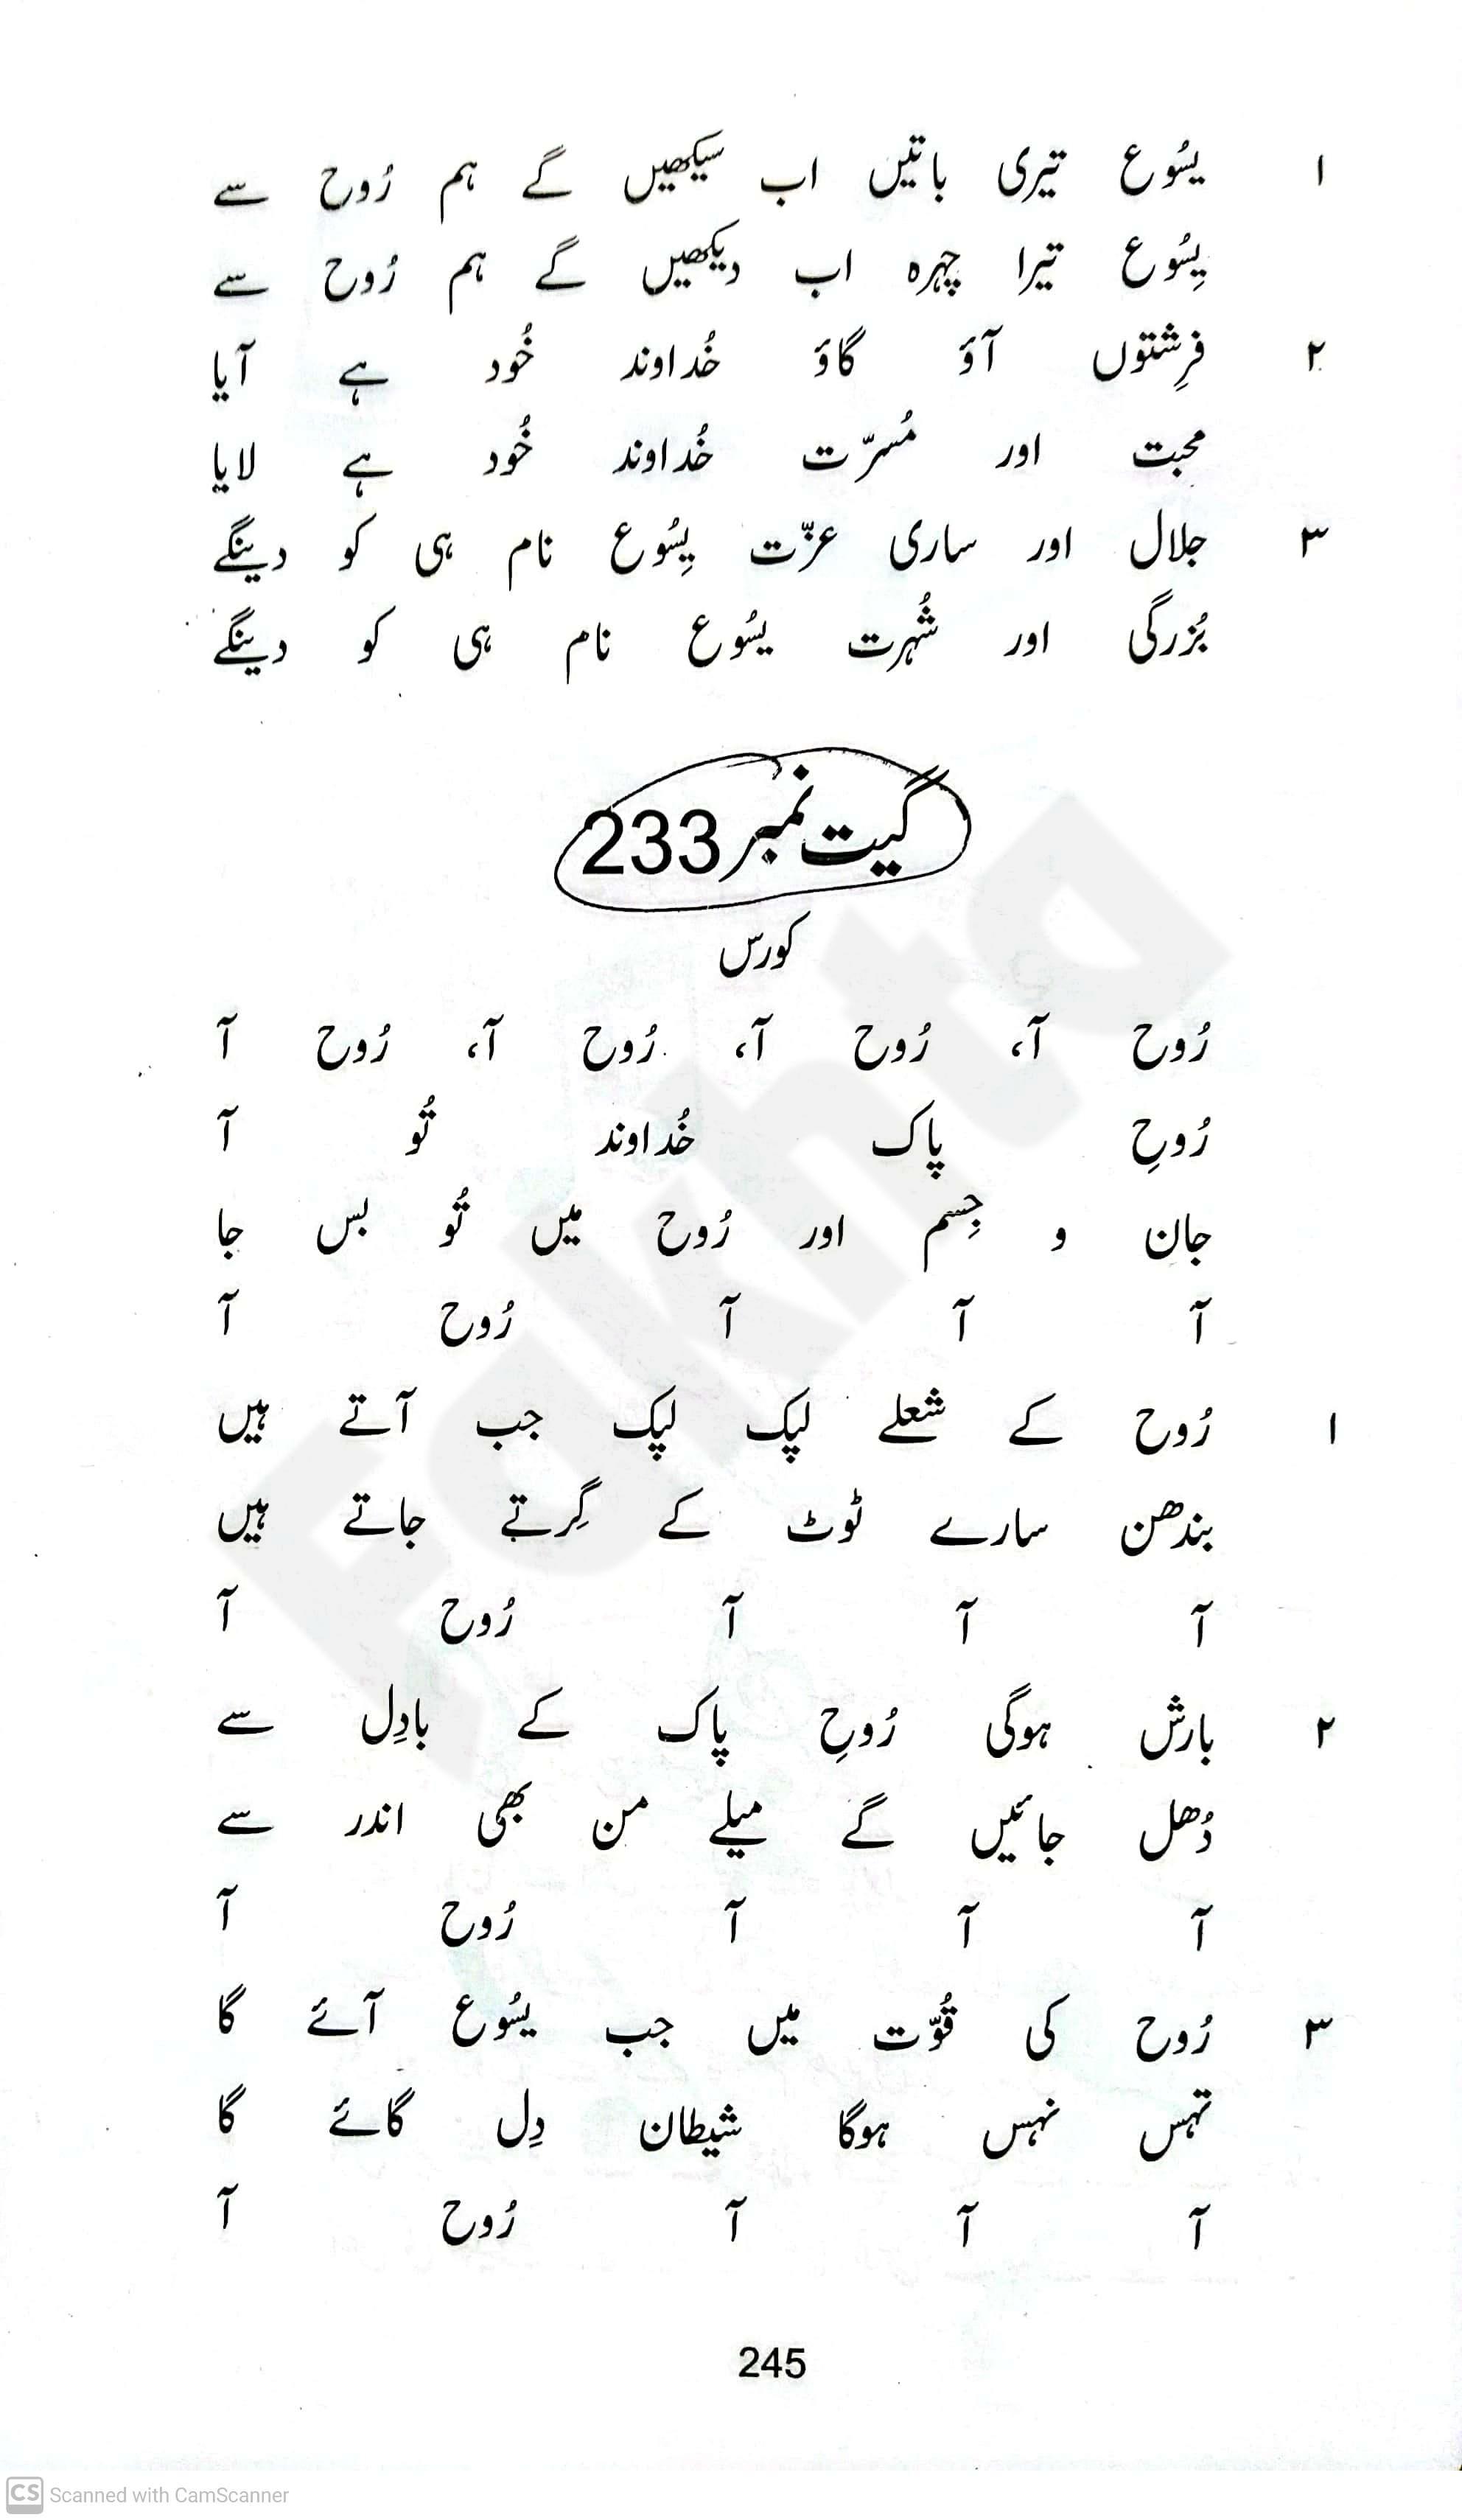 ۱ یسُوع تیری باتیں اب سیکھیں گے ہم رُوح سے
یِسُوع تیرا چہرہ اب دیکھیں گے ہم رُوح سے
۲ فرِشتوں آؤ گاؤ خُداوند خُود ہے آیا
محبت اور مُسرّت خُداوند خُود ہے لایا
۳ جلال اور ساری عزّت یِسُوع نام ہی کو دینگے
بُزرگی اور شُہرت یسُوع نام ہی کو دینگے
گیت نمبر 233
کورس
رُوح آ، رُوح آ، رُوح آ، رُوح آ
رُوحِ پاک خُداوند تُو آ
جان و جِسم اور رُوح میں تُو بس جا
آ آ آ رُوح آ
۱ رُوح کے شعلے لپک لپک جب آتے ہیں
بندھن سارے ٹوٹ کے گِرتے جاتے ہیں
آ آ آ رُوح آ
۲ بارش ہوگی رُوحِ پاک کے بادِل سے
دُھل جائیں گے میلے من بھی اندر سے
آ آ آ رُوح آ
۳ رُوح کی قُوّت میں جب یسُوع آئے گا
تہس نہس ہوگا شیطان دِل گائے گا
آ آ آ رُوح آ
245
Fakhta
CS Scanned with CamScanner